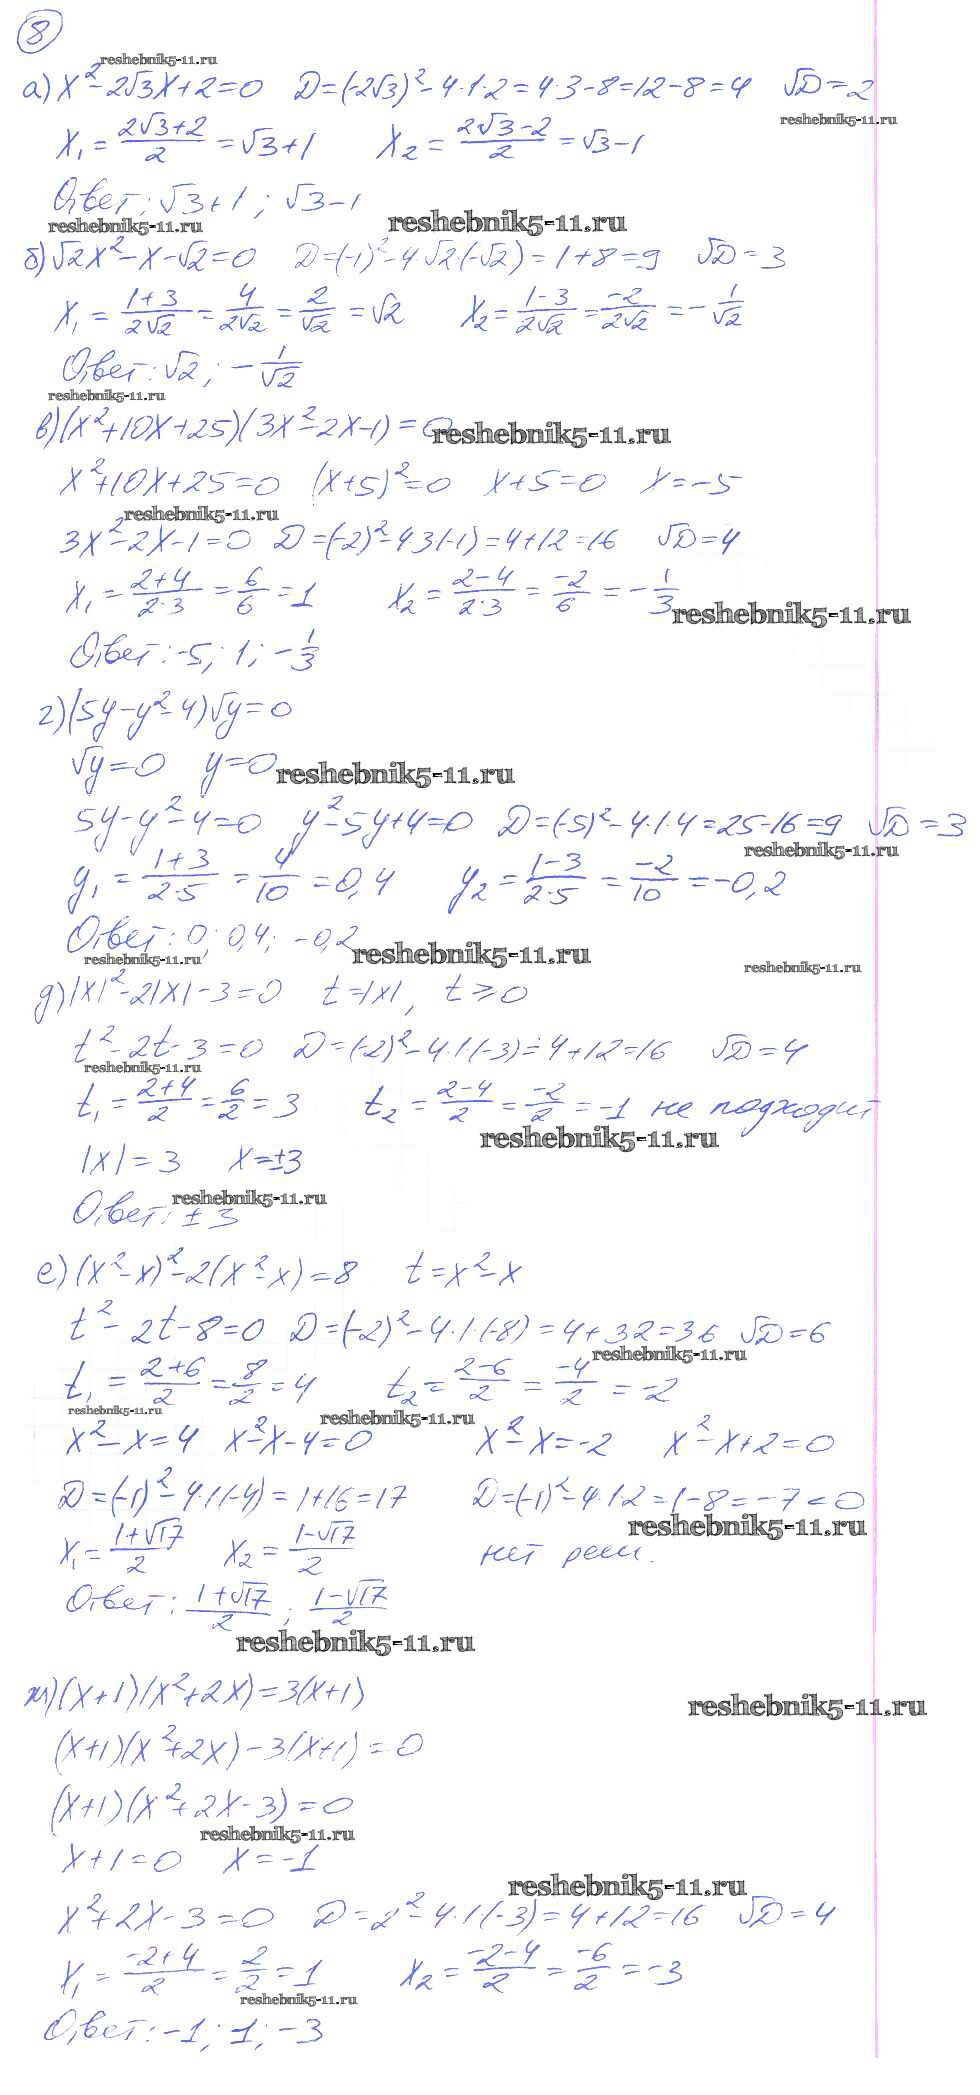 8
reshebnik5-11.ru
а) x²-2√3x+2=0 D=(-2√3)²-4·1·2=4·3-8=12-8=4 √D=2
reshebnik5-11.ru
x₁=(2√3+2)/2=√3+1 x₂=(2√3-2)/2=√3-1
Ответ: √3+1; √3-1
reshebnik5-11.ru reshebnik5-11.ru
б) √2x²-x-√2=0 D=(-1)²-4√2·(-√2)=1+8=9 √D=3
x₁=(1+3)/(2√2)=4/(2√2)=2/√2=√2 x₂=(1-3)/(2√2)=-2/(2√2)=-1/√2
Ответ: √2; -1/√2
reshebnik5-11.ru
в) (x²+10x+25)(3x²-2x-1)=0
reshebnik5-11.ru
x²+10x+25=0 (x+5)²=0 x+5=0 x=-5
reshebnik5-11.ru
3x²-2x-1=0 D=(-2)²-4·3(-1)=4+12=16 √D=4
x₁=(2+4)/(2·3)=6/6=1 x₂=(2-4)/(2·3)=-2/6=-1/3
reshebnik5-11.ru
Ответ: -5; 1; -1/3
г) (5y-y²-4)√y=0
√y=0 y=0
reshebnik5-11.ru
5y-y²-4=0 y²-5y+4=0 D=(-5)²-4·1·4=25-16=9 √D=3
reshebnik5-11.ru
y₁=(1+3)/(2·5)=4/10=0,4 y₂=(1-3)/(2·5)=-2/10=-0,2
Ответ: 0; 0,4; -0,2
reshebnik5-11.ru reshebnik5-11.ru reshebnik5-11.ru
д) |x|²-2|x|-3=0 t=|x|, t≥0
t²-2t-3=0 D=(-2)²-4·1(-3)=4+12=16 √D=4
reshebnik5-11.ru
t₁=(2+4)/2=6/2=3 t₂=(2-4)/2=-2/2=-1 не подходит
reshebnik5-11.ru
|x|=3 x=±3
reshebnik5-11.ru
Ответ: ±3
е) (x²-x)²-2(x²-x)=8 t=x²-x
t²-2t-8=0 D=(-2)²-4·1(-8)=4+32=36 √D=6
reshebnik5-11.ru
t₁=(2+6)/2=8/2=4 t₂=(2-6)/2=-4/2=-2
reshebnik5-11.ru reshebnik5-11.ru
x²-x=4 x²-x-4=0 x²-x=-2 x²-x+2=0
D=(-1)²-4·1(-4)=1+16=17 D=(-1)²-4·1·2=1-8=-7<0
reshebnik5-11.ru
x₁=(1+√17)/2 x₂=(1-√17)/2 нет реш.
Ответ: (1+√17)/2; (1-√17)/2
reshebnik5-11.ru
ж) (x+1)(x²+2x)=3(x+1)
reshebnik5-11.ru
(x+1)(x²+2x)-3(x+1)=0
(x+1)(x²+2x-3)=0
reshebnik5-11.ru
x+1=0 x=-1
reshebnik5-11.ru
x²+2x-3=0 D=2²-4·1(-3)=4+12=16 √D=4
x₁=(-2+4)/2=2/2=1 x₂=(-2-4)/2=-6/2=-3
reshebnik5-11.ru
Ответ: -1; 1; -3